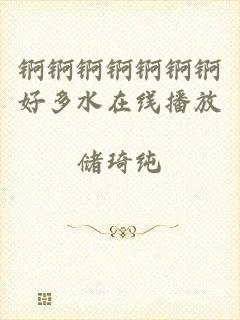 锕锕锕锕锕锕锕
好多水在线播放
储琦纯